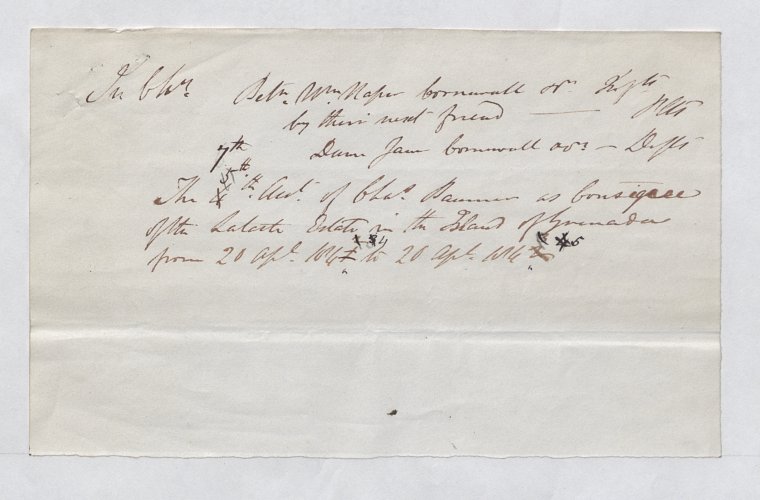 In Chry.
Betn. Wm. Napier Cornwall & ors. Infts
by their next friend — Plts
7th Dame Jane Cornwall & ors — Defts
5th
The th. Acct. of Chas. as Consignee
of the Estate in the Island of Grenada
from 20 Apl. 184 4 to 20 Apl. 184 5